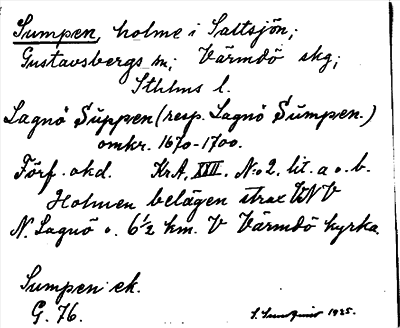 Sumpen, holme i Saltsjön;
Gustavsbergs sn; Värmdö skg;
Sthlms l.
Lagnö Suppen (resp. Lagnö Sumpen.)
omkr. 1670-1700.
Förf. okd. Kr.A. XVII. N:o 2, lit. a o. b.
Holmen belägen strax VNV
N. Lagnö o. 6½ km. V Värmdö kyrka.
Sumpen ek.
G. 76.
1925.